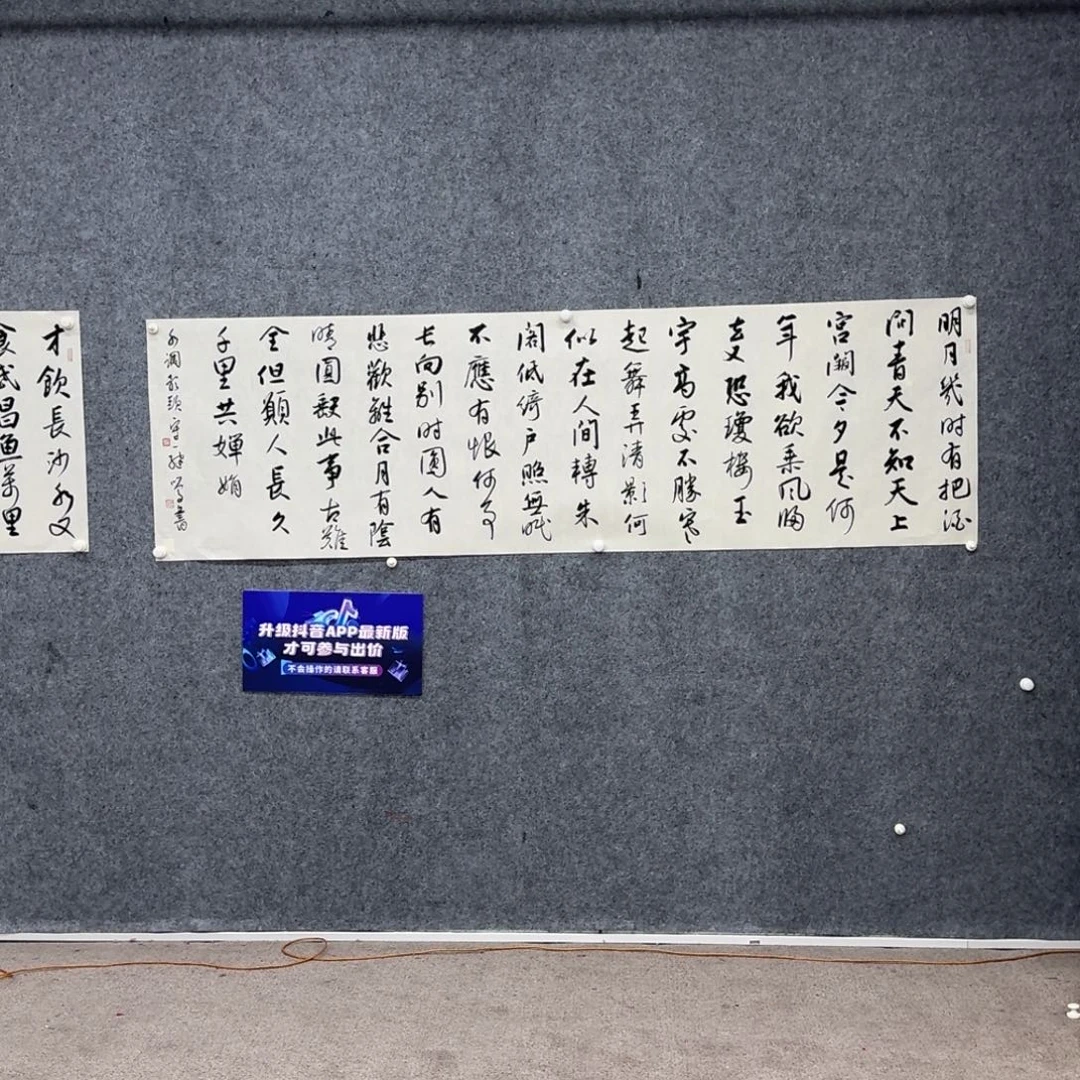 明月幾时有把酒
问青天不知天上
宮阙今夕是何
年我欲乘风歸
去又恐瓊楼玉
宇高處不胨寒
起舞弄清影何
似在人间轉朱
阁低绮户照無眠
不應有恨何事
长向别时圆人有
悲歡離合月有陰
晴圆缺此事古難
全但願人長久
千里共嬋娟
水调歌頭
书
才飲長沙水又
食武昌鱼萬里
升级抖音APP最新版
才可参与出价
不会操作的请联系客服